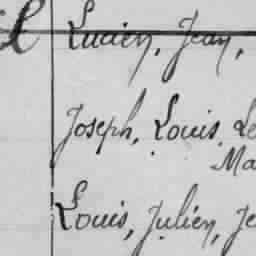 Lucien, Jean,
Joseph, Louis, Le
Ma
Louis, Julien, Je